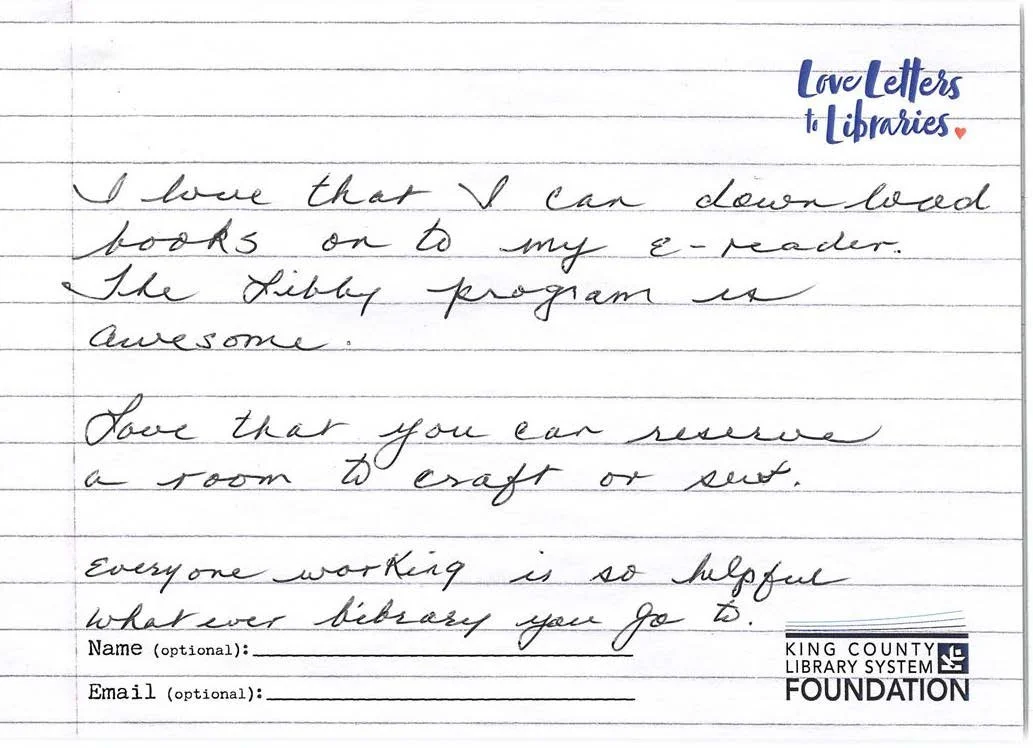 Love Letters
to Libraries
I love that I can down load
books on to my E-reader.
The Libby program is
awesome.
Love that you can reserve
a room to craft or sew.
Everyone working is so helpful
what ever library you go to.
Name (optional):
Email (optional):
KING COUNTY
LIBRARY SYSTEM
FOUNDATION